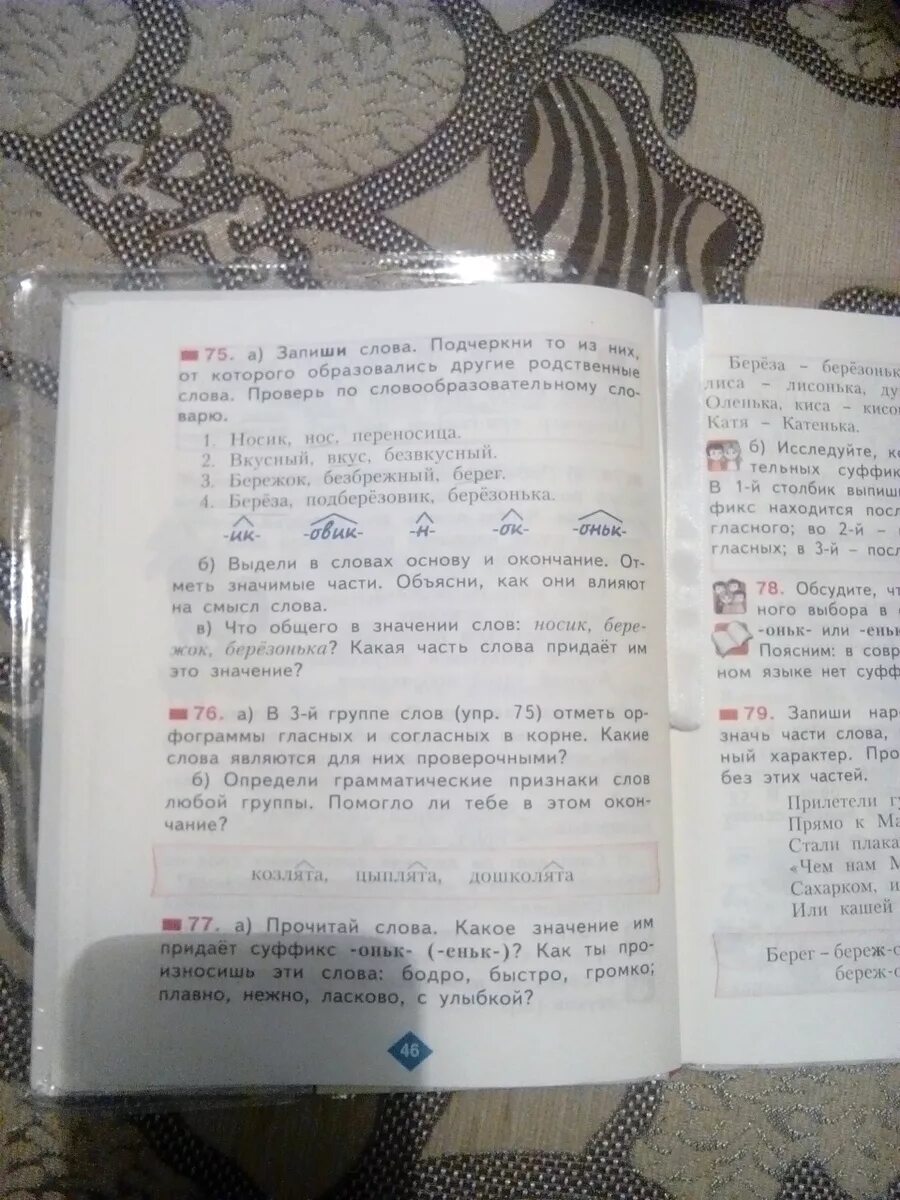 75. а) Запиши слова. Подчеркни то из них,
от которого образовались другие родственные
слова. Проверь по словообразовательному сло-
варю.
1. Носик, нос, переносица.
2. Вкусный, вкус, безвкусный.
3. Бережок, безбрежный, берег.
4. Берёза, подберёзовик, берёзонька.
-ик- -овик- -н- -ок- -оньк-
б) Выдели в словах основу и окончание. От-
меть значимые части. Объясни, как они влияют
на смысл слова.
в) Что общего в значении слов: носик, бере-
жок, берёзонька? Какая часть слова придаёт им
это значение?
76. а) В 3-й группе слов (упр. 75) отметь ор-
фограммы гласных и согласных в корне. Какие
слова являются для них проверочными?
б) Определи грамматические признаки слов
любой группы. Помогло ли тебе в этом окон-
чание?
козлята, цыплята, дошколята
77. а) Прочитай слова. Какое значение им
придаёт суффикс -оньк- (-еньк-)? Как ты про-
износишь эти слова: бодро, быстро, громко;
плавно, нежно, ласково, с улыбкой?
46
Берёза – берёзоньк
лиса – лисонька, ду
Оленька, киса – кисо
Катя – Катенька.
б) Исследуйте, ко
тельных суффик
В 1-й столбик выпиш
фикс находится посл
гласного; во 2-й –
гласных; в 3-й – посл
78. Обсудите, чт
ного выбора в
-оньк- или -еньк
Поясним: в совр
ном языке нет суфф
79. Запиши нар
значь части слова,
ный характер. Про
без этих частей.
Прилетели гу
Прямо к Ма
Стали плака
«Чем нам М
Сахарком, и
Или кашей
Берег – береж-о
береж-о